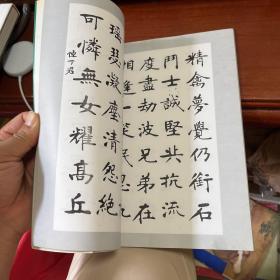 精禽夢覺仍銜石
鬥士誠堅共抗流
度盡劫波兄弟在
相逢一笑泯恩
瑤瑟凝塵清怨絕
可憐無女耀高丘
悼丁君